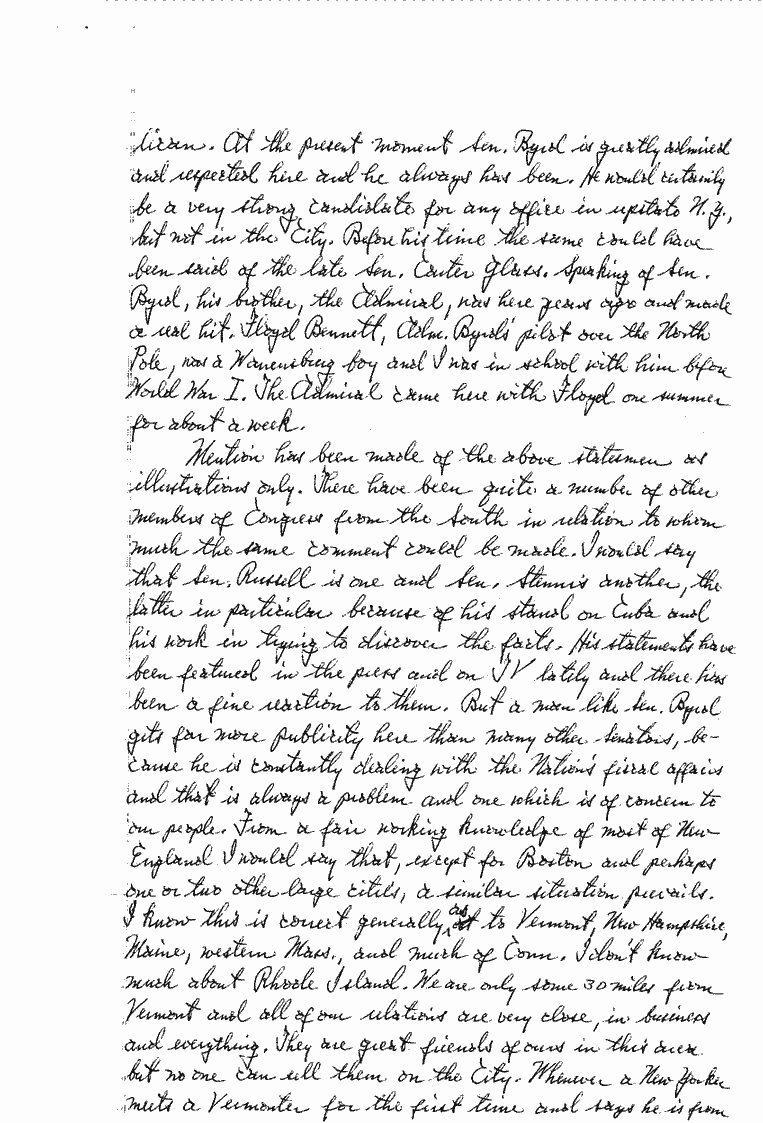 lican. At the present moment Sen. Byrd is greatly admired
and respected here and he always has been. He would certainly
be a very strong candidate for any office in upstate N.Y.,
but not in the City. Before his time the same could have
been said of the late Sen. Carter Glass. Speaking of Sen.
Byrd, his brother, the Admiral, was here years ago and made
a real hit. Floyd Bennett, Adm. Byrd's pilot over the North
Pole, was a Warrensburg boy and I was in school with him before
World War I. The Admiral came here with Floyd one summer
for about a week.
Mention has been made of the above statesmen as
illustrations only. There have been quite a number of other
members of Congress from the South in relation to whom
much the same comment could be made. I would say
that Sen. Russell is one and Sen. Stennis another, the
latter in particular because of his stand on Cuba and
his work in trying to discover the facts. His statements have
been featured in the press and on TV lately and there has
been a fine reaction to them. But a man like Sen. Byrd
gets far more publicity here than many other Senators, be-
cause he is constantly dealing with the Nation's fiscal affairs
and that is always a problem and one which is of concern to
our people. From a fair working knowledge of most of New
England I would say that, except for Boston and perhaps
one or two other large cities, a similar situation prevails.
I know this is correct generally as to Vermont, New Hampshire,
Maine, western Mass., and much of Conn. I don't know
much about Rhode Island. We are only some 30 miles from
Vermont and all of our relations are very close, in business
and everything. They are great friends of ours in this area
but no one can sell them on the City. Whenever a New Yorker
meets a Vermonter for the first time and says he is from